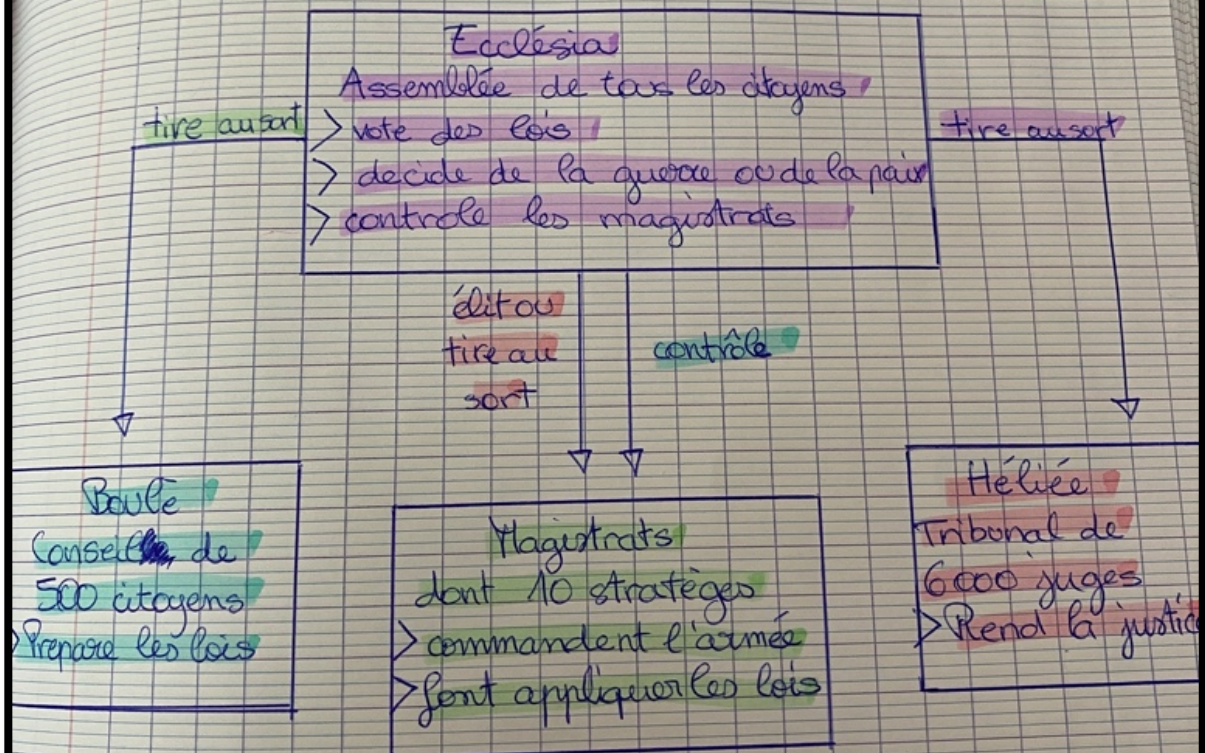 Ecclésia
Assemblée de tous les citoyens
tire au sort
> vote des lois
tire au sort
> décide de la guerre ou de la paix
> controle les magistrats
élit ou
tire au
sort
contrôle
Boulè
Conseil de
500 citoyens
> Prepare les lois
Magistrats
dont 10 stratèges
> commandent l'armée
> font appliquer les lois
Héliée
Tribunal de
6000 juges
> Rend la justice